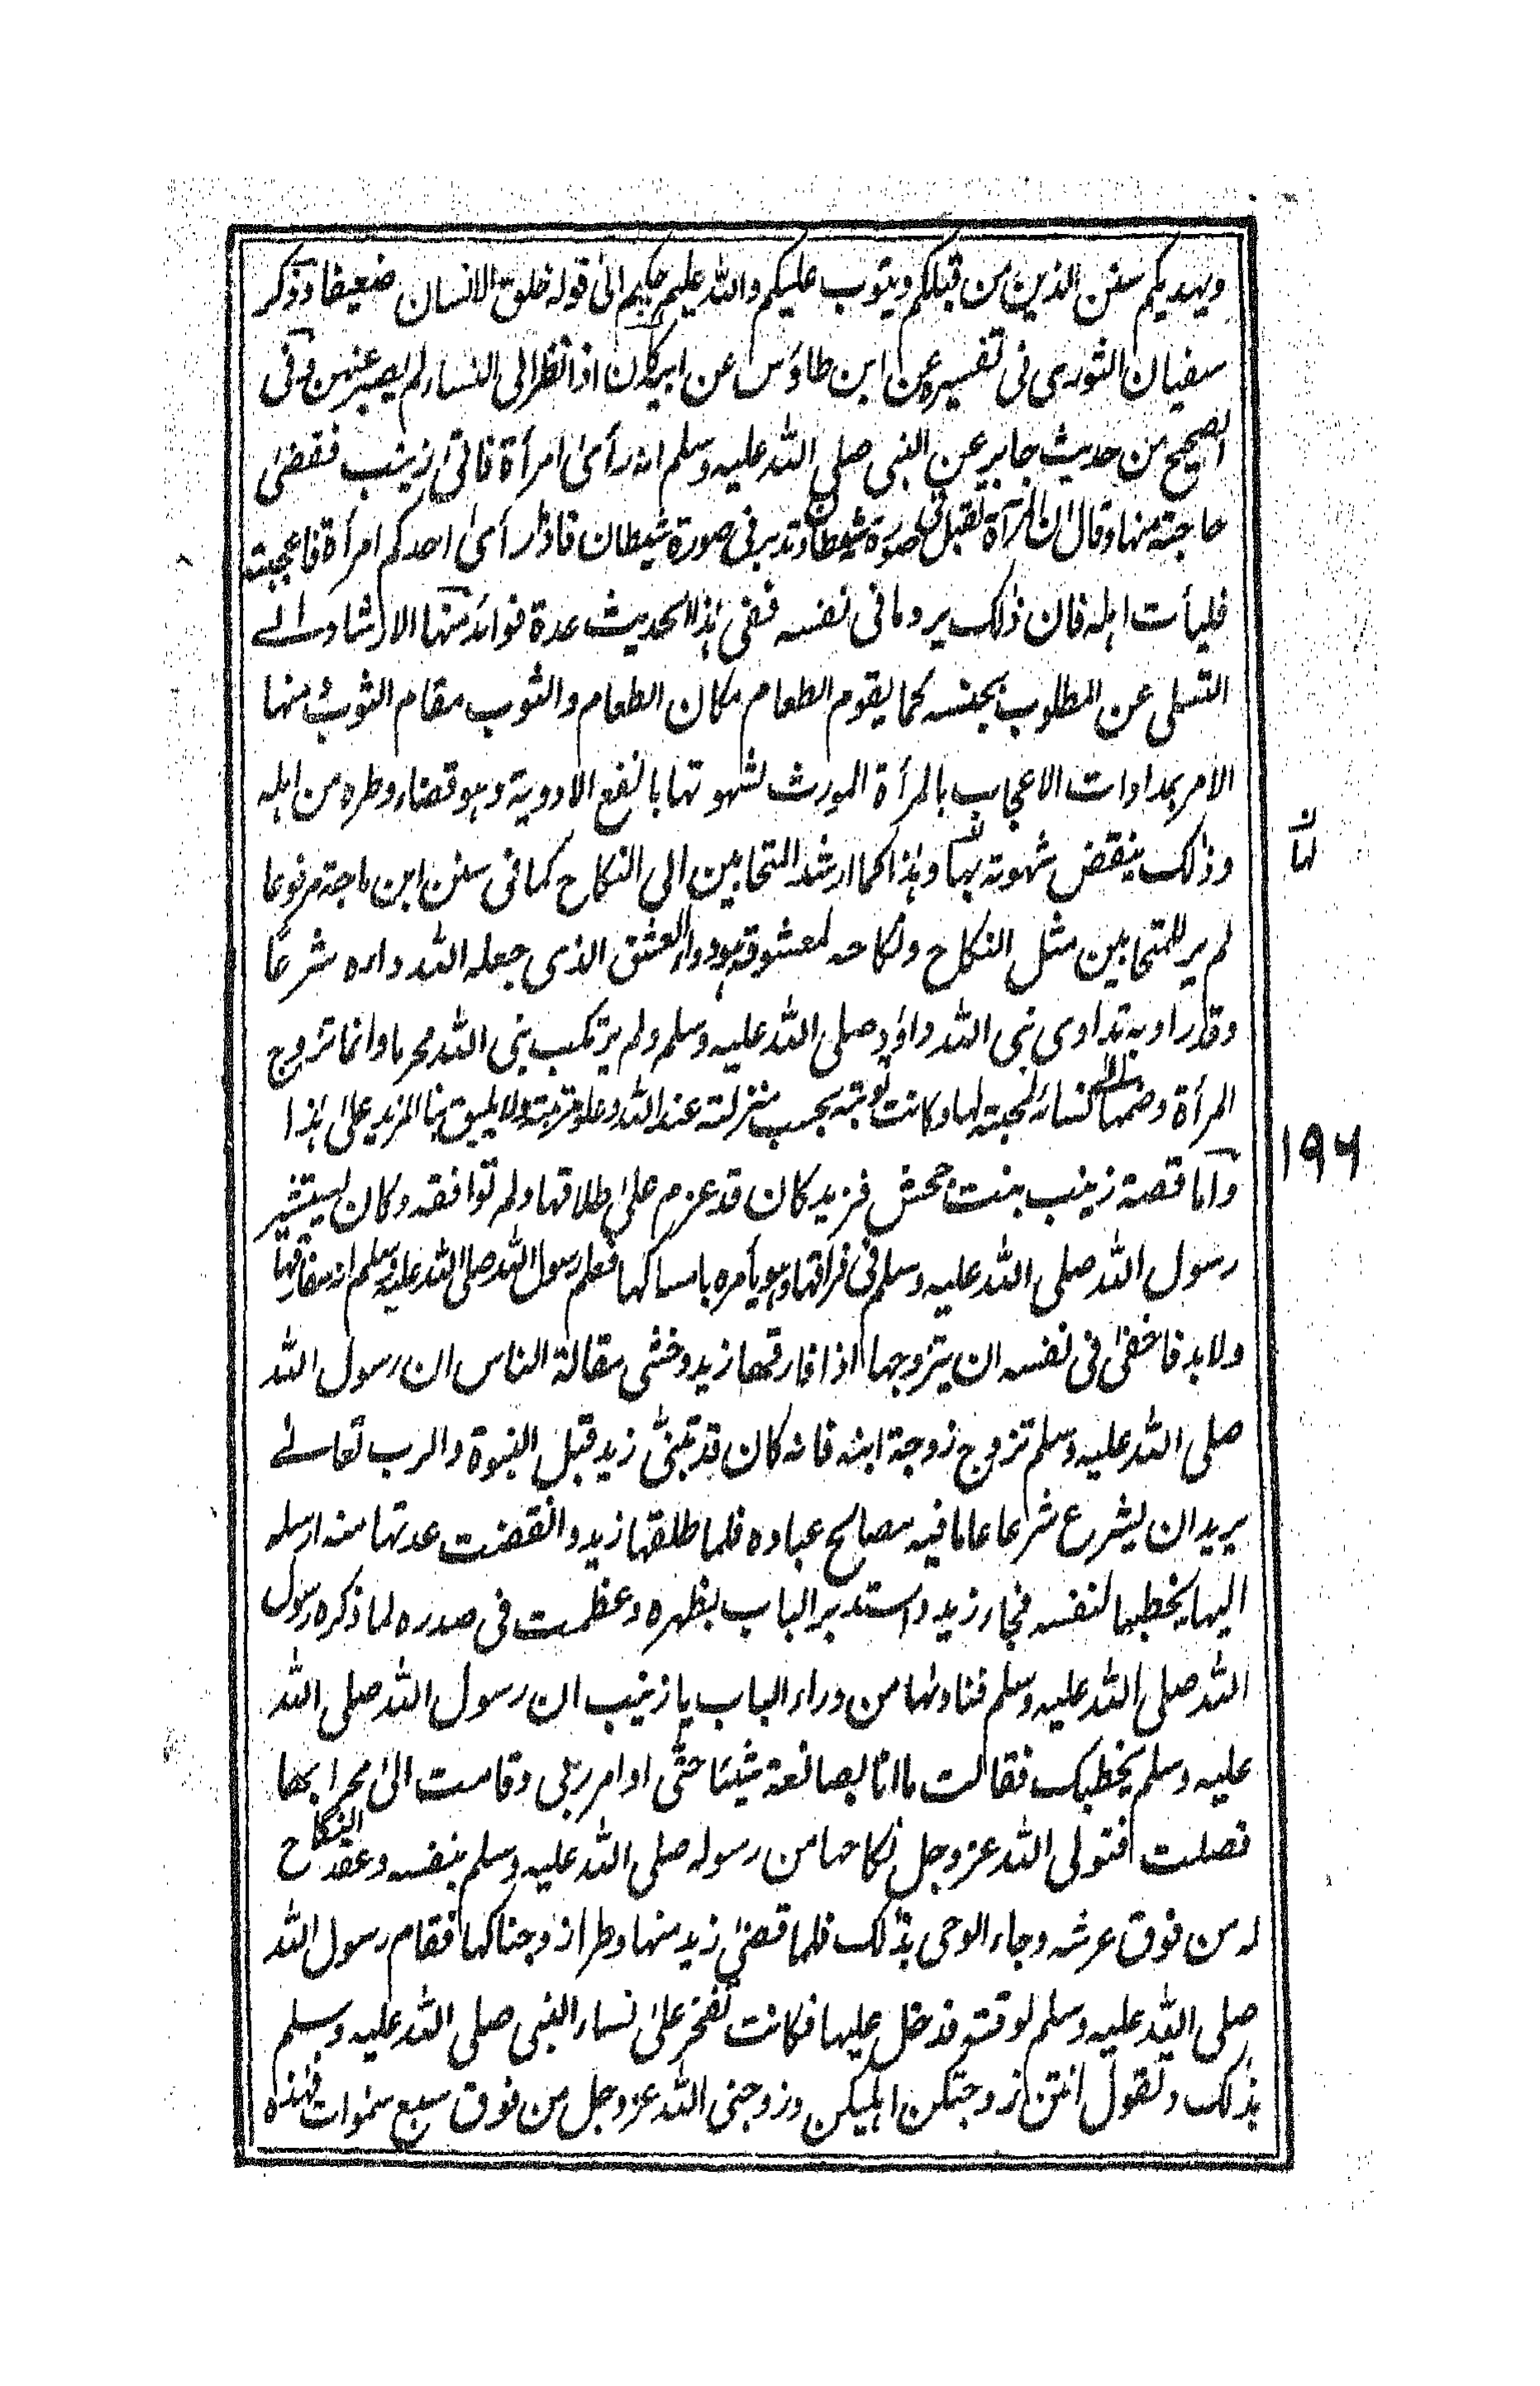 ويهديكم سنن الذين من قبلكم ويتوب عليكم والله عليم حكيم الى قوله خلق الانسان ضعيفا وذكر
سفيان الثورى فى تفسيره عن ابن طاؤس عن ابيه كان اذا نظر الى النساء لم يصبر عنهن وفى
الصحيح من حديث جابر عن النبى صلى الله عليه وسلم انه رأى امرأة فاتى زينب فقضى
حاجته منها وقال ان المرآة تقبل فى صورة شيطان وتدبر فى صورة شيطان فاذا رأى احدكم امرأة فاعجبته
فليأت اهله فان ذلك يرد ما فى نفسه ففى هذا الحديث عدة فوائد منها الارشاد الے
التسلى عن المطلوب بجنسه كما يقوم الطعام مكان الطعام والثوب مقام الثوب ومنها
الامر بمداوات الاعجاب بالمرأة المورث لشهوتها بانفع الادوية وهو قضاء وطره من اهله
وذلك ينقض شهوته بها وهذا كما ارشد المتحابين الى النكاح كما فى سنن ابن ماجة مرفوعا
لها ن
لم ير للمتحابين مثل النكاح ونكاحه لمعشوقه هو دواء العشق الذى جعله الله دواءه شرعًا
وقدرا وبه تداوى نبى الله داؤد صلى الله عليه وسلم ولم يرتكب نبى الله محرما وانما تزوج
المرأة وضمها الى نسائه لمحبته لها وكانت توبته بحسب منزلته عند الله وعلو مرتبته ولا يليق بنا المزيد على هذا
۱۹۶
وآما قصة زينب بنت جحش فزيد كان قد عزم على طلاقها ولم توافقه وكان يستشير
رسول الله صلى الله عليه وسلم فى فراقها وهو يأمره بامساكها فعلم رسول الله صلى الله عليه وسلم انه مفارقها
ولا بد فاخفى فى نفسه ان يتزوجها اذا فارقها زيد وخشى مقالة الناس ان رسول الله
صلى الله عليه وسلم تزوج زوجة ابنه فانه كان قد تبنى زيد قبل النبوة والرب تعالے
يريد ان يشرع شرعا عاما فيه مصالح عباده فلما طلقها زيد وانقضت عدتها منه ارسله
اليها يخطبها لنفسه فجاء زيد واستدبر الباب بظهره وعظمت فى صدره لما ذكره رسول
الله صلى الله عليه وسلم فناداها من وراء الباب يا زينب ان رسول الله صلى الله
عليه وسلم يخطبك فقالت ما انا بصانعة شيئا حتى اوامر ربى وقامت الى محرابها
فصلت فتولى الله عز وجل نكاحها من رسوله صلى الله عليه وسلم بنفسه وعقد النكاح
له من فوق عرشه وجاء الوحى بذلك فلما قضى زيد منها وطرا زوجناكها فقام رسول الله
صلى الله عليه وسلم لوقته فدخل عليها فكانت تفخر على نساء النبى صلى الله عليه وسلم
بذلك وتقول انتن زوجتكن اهليكن وزوجنى الله عز وجل من فوق سبع سموات فهذه